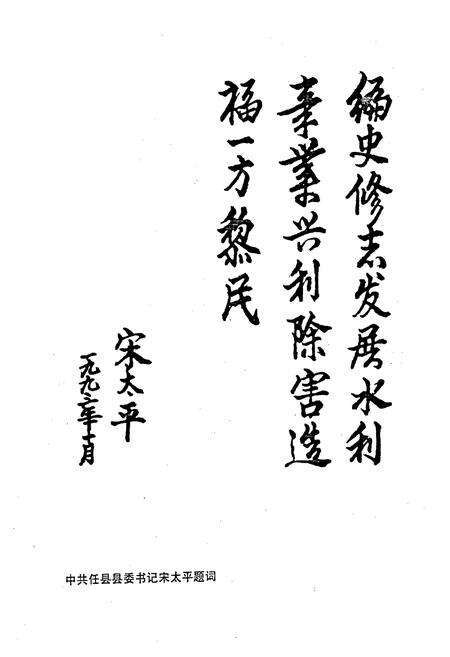 编史修志发展水利
事业兴利除害造
福一方黎民
宋太平
一九九三年十月
中共任县县委书记宋太平题词